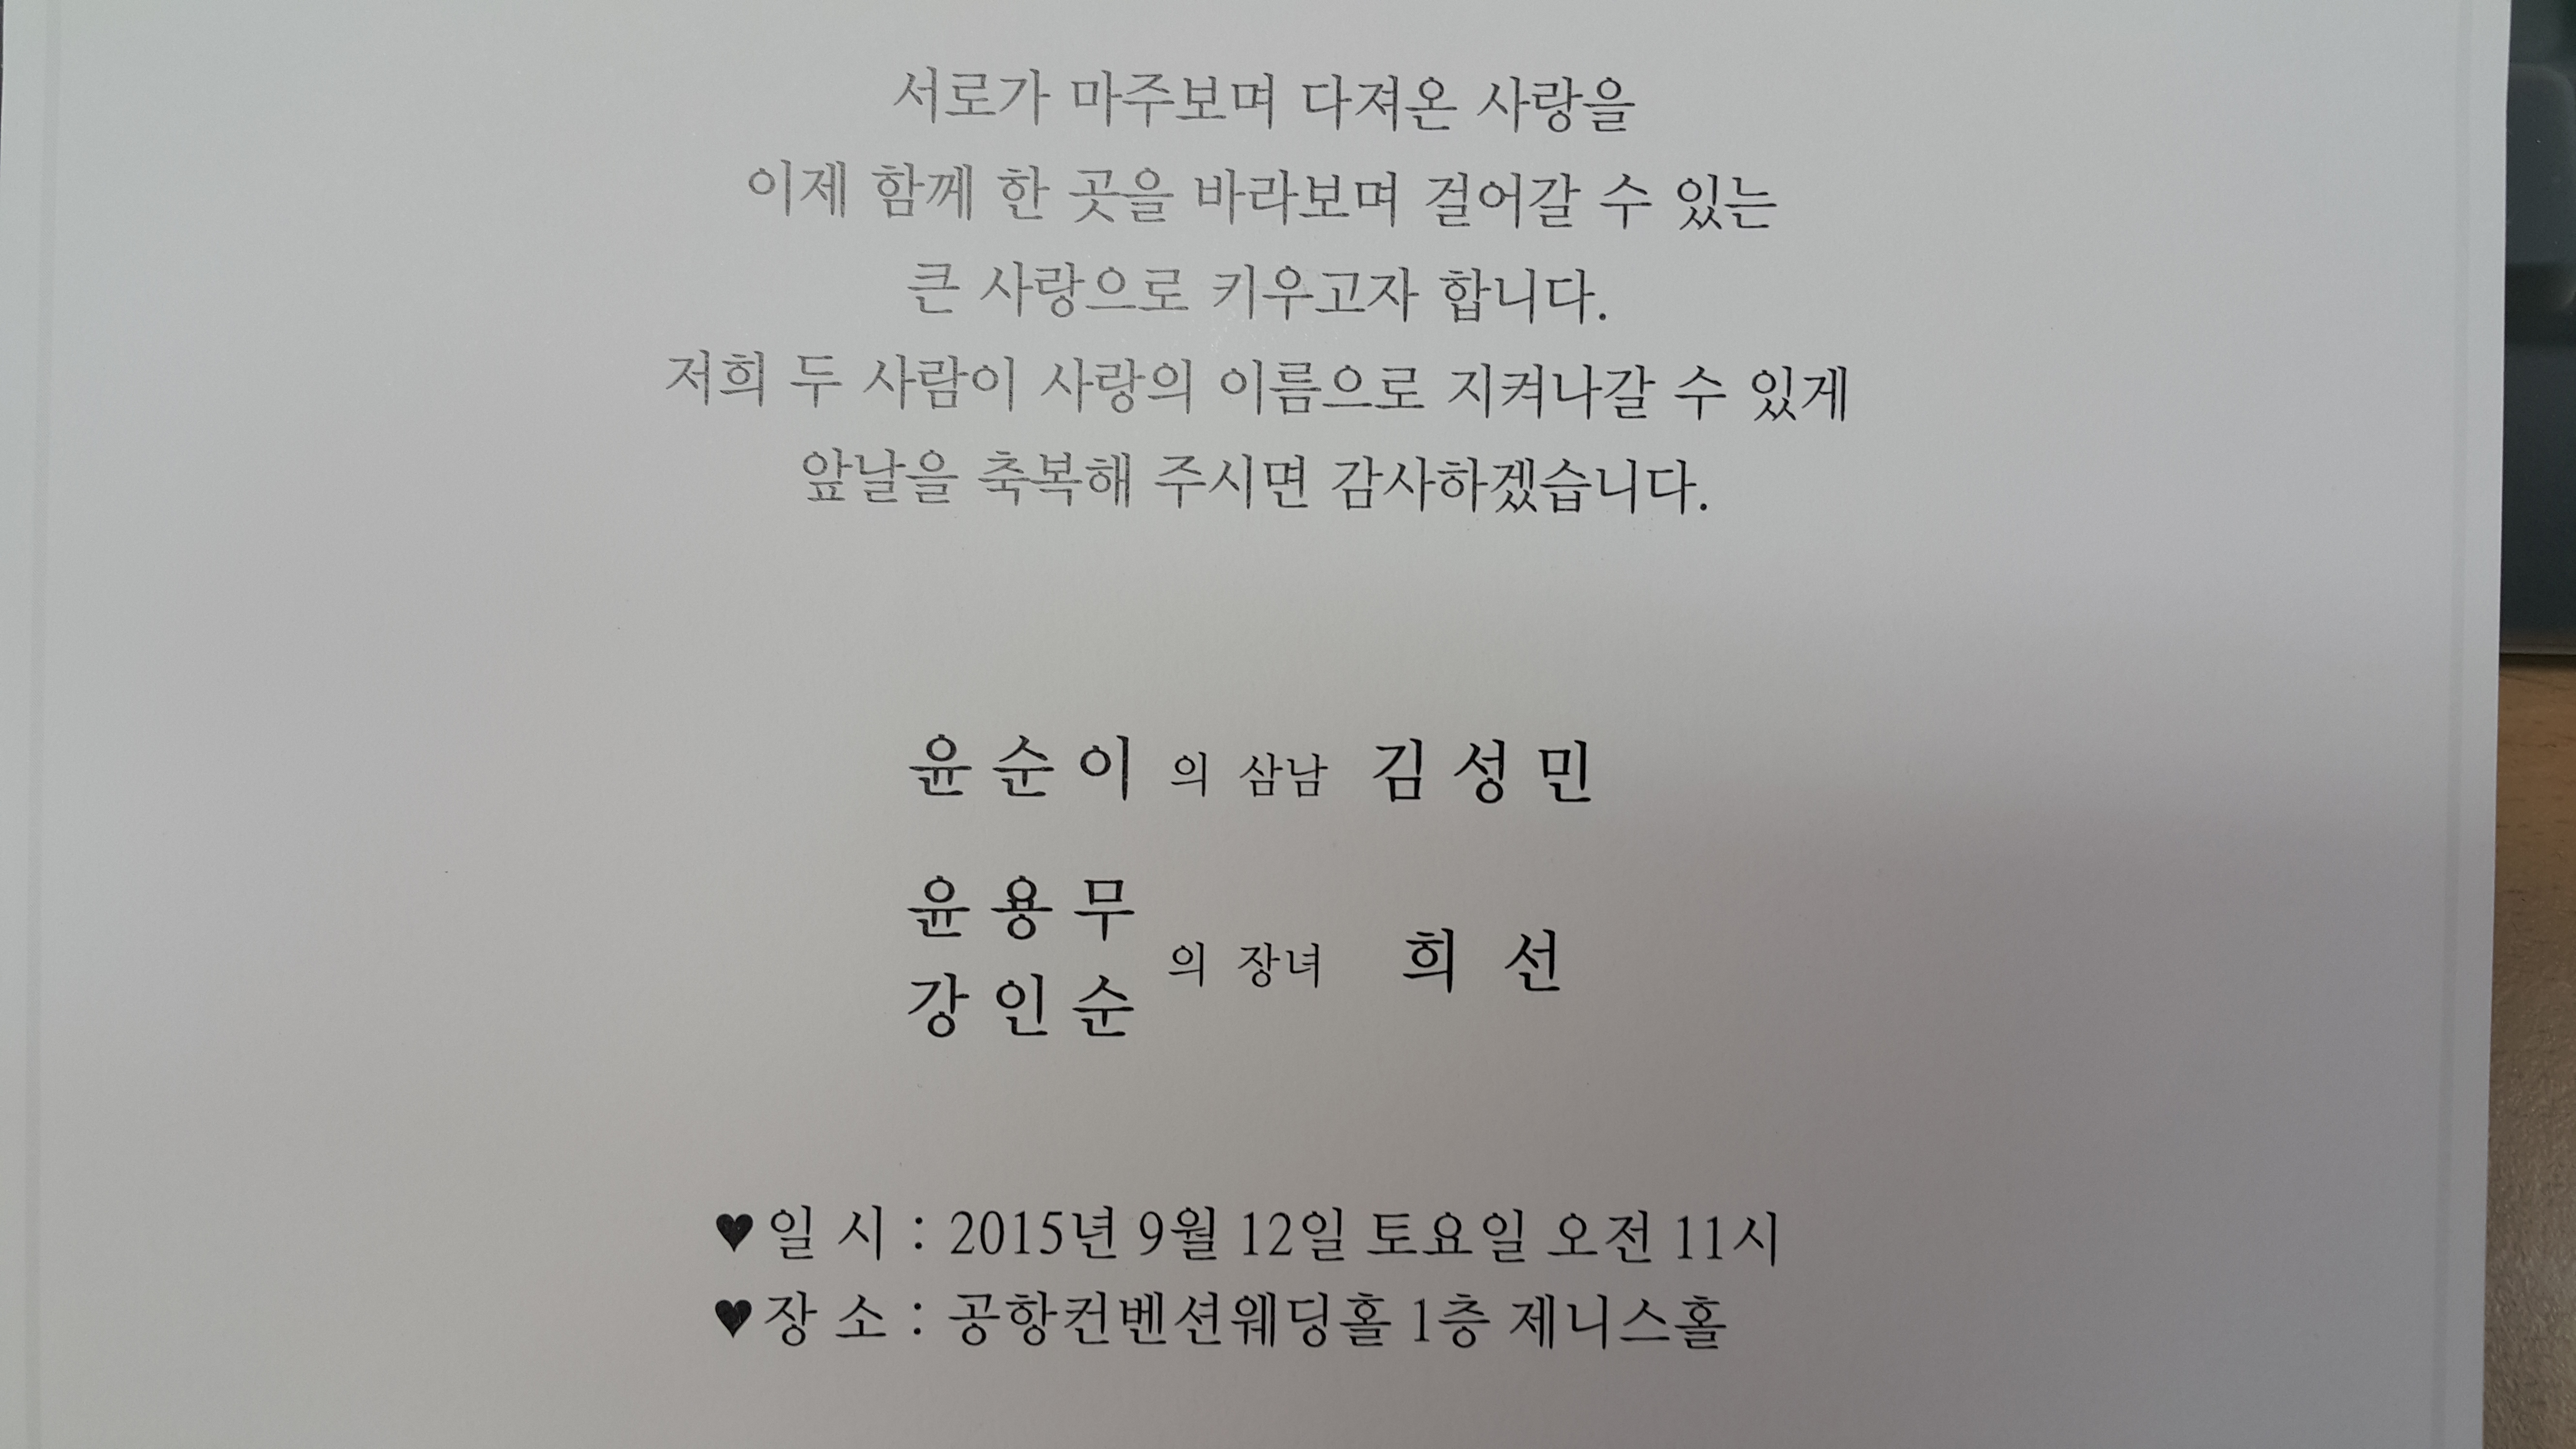 서로가 마주보며 다져온 사랑을
이제 함께 한 곳을 바라보며 걸어갈 수 있는
큰 사랑으로 키우고자 합니다.
저희 두 사람이 사랑의 이름으로 지켜나갈 수 있게
앞날을 축복해 주시면 감사하겠습니다.
윤순이 의 삼남 김성민
윤용무
강인순
의 장녀 희선
♥일 시 : 2015년 9월 12일 토요일 오전 11시
♥장 소 : 공항컨벤션웨딩홀 1층 제니스홀